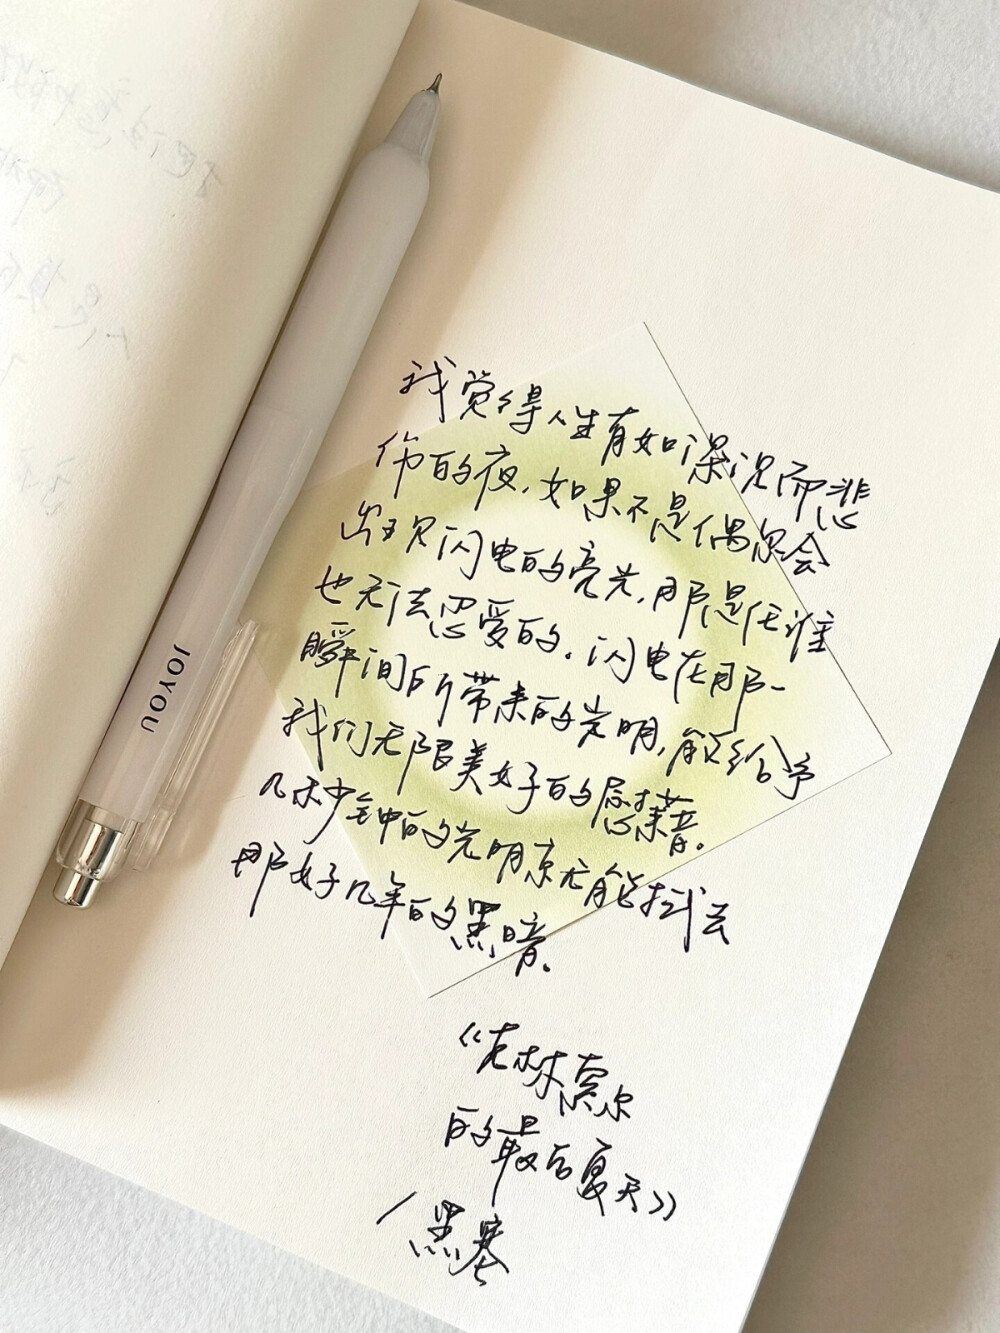 我觉得人生有如深沉而悲
伤的夜,如果不是偶尔会
出现闪电的亮光,那是任谁
也无法忍受的。闪电在那一
瞬间所带来的光明,能给予
我们无限美好的慰藉。
几秒钟的光明就能抹去
那好几年的黑暗。
《克林索尔
的最后夏天》
/黑塞
JOYOU